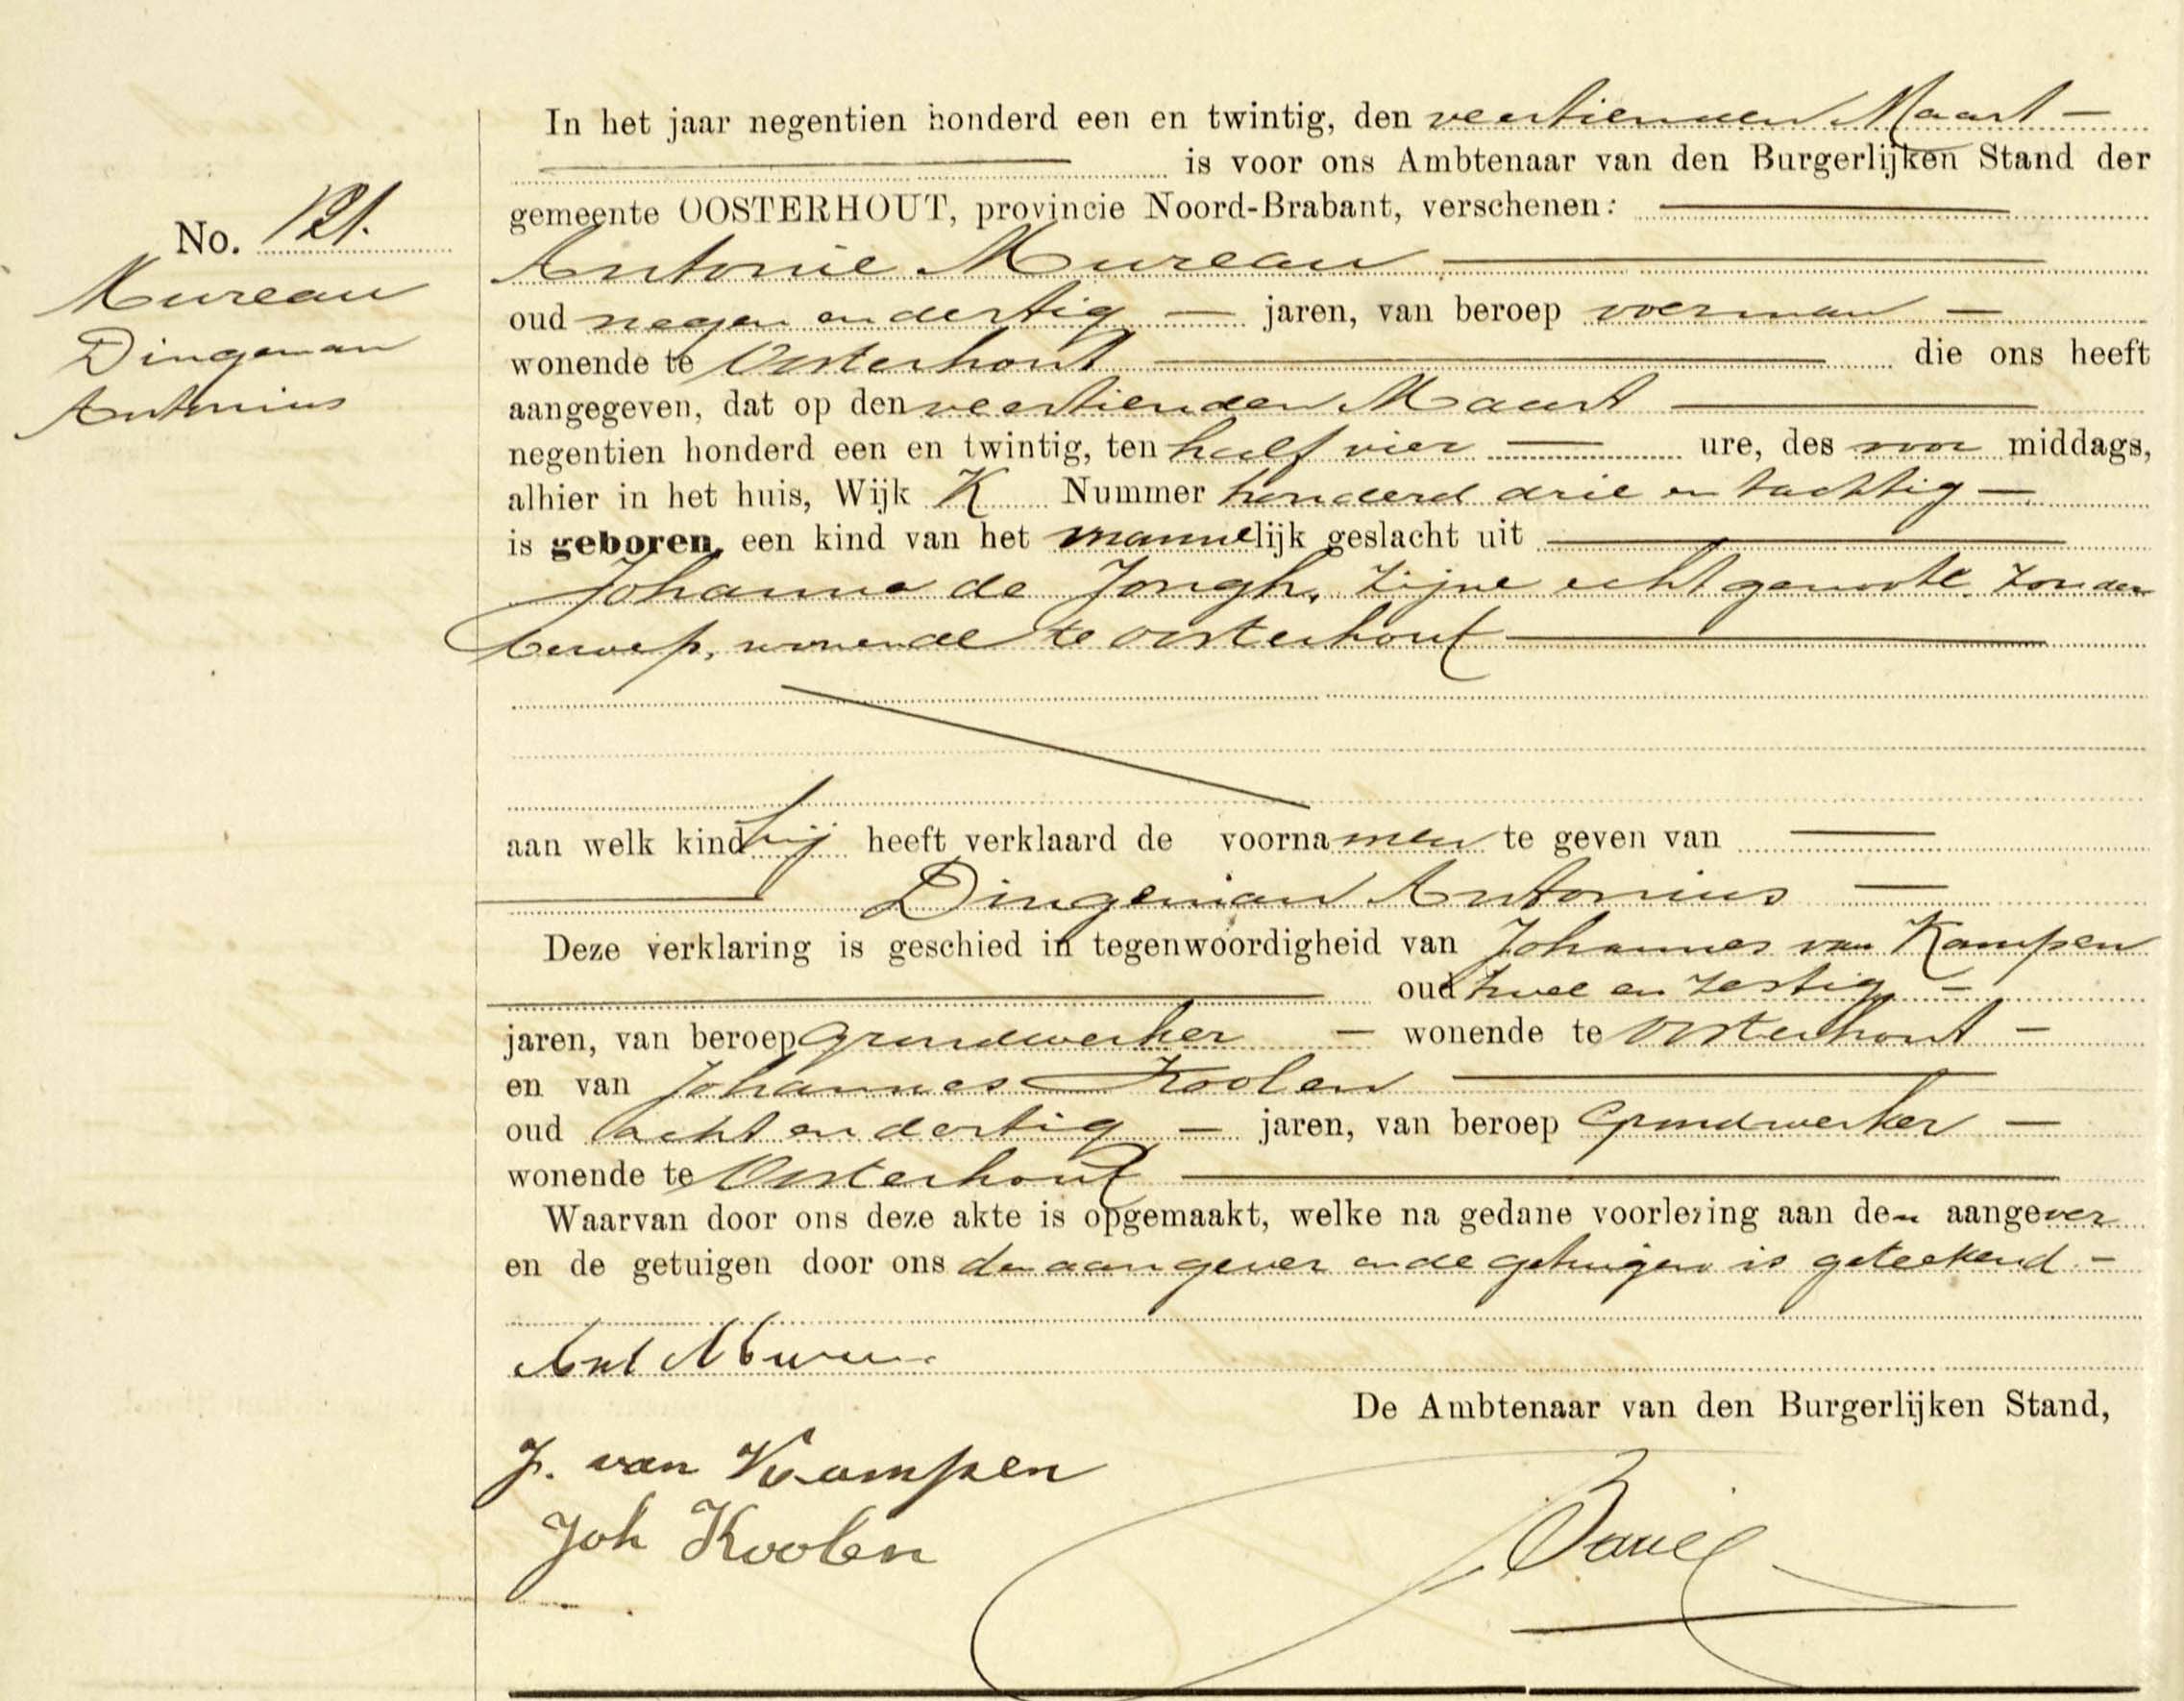 In het jaar negentien honderd een en twintig, den veertienden Maart —
is voor ons Ambtenaar van den Burgerlijken Stand der
gemeente OOSTERHOUT, provincie Noord-Brabant, verschenen:
No. 121.
Mureau
Dingeman
Antonius
Antonie Mureau
oud negen en dertig — jaren, van beroep voerman —
wonende te Oosterhout die ons heeft
aangegeven, dat op den veertienden Maart
negentien honderd een en twintig, ten half vier — ure, des voor middags,
alhier in het huis, Wijk K Nummer honderd drie en tachtig —
is geboren, een kind van het mannelijk geslacht uit
Johanna de Jongh, zijne echtgenoote, zonder
beroep, wonende te Oosterhout
aan welk kind hij heeft verklaard de voornamen te geven van
Dingeman Antonius —
Deze verklaring is geschied in tegenwoordigheid van Johannes van Kampen
oud twee en zestig —
jaren, van beroep grondwerker — wonende te Oosterhout —
en van Johannes Koolen
oud acht en dertig — jaren, van beroep grondwerker —
wonende te Oosterhout
Waarvan door ons deze akte is opgemaakt, welke na gedane voorlezing aan den aangever
en de getuigen door ons den aangever en de getuigen is geteekend. —
Ant Mureau
De Ambtenaar van den Burgerlijken Stand,
J. van Kampen
Joh Koolen